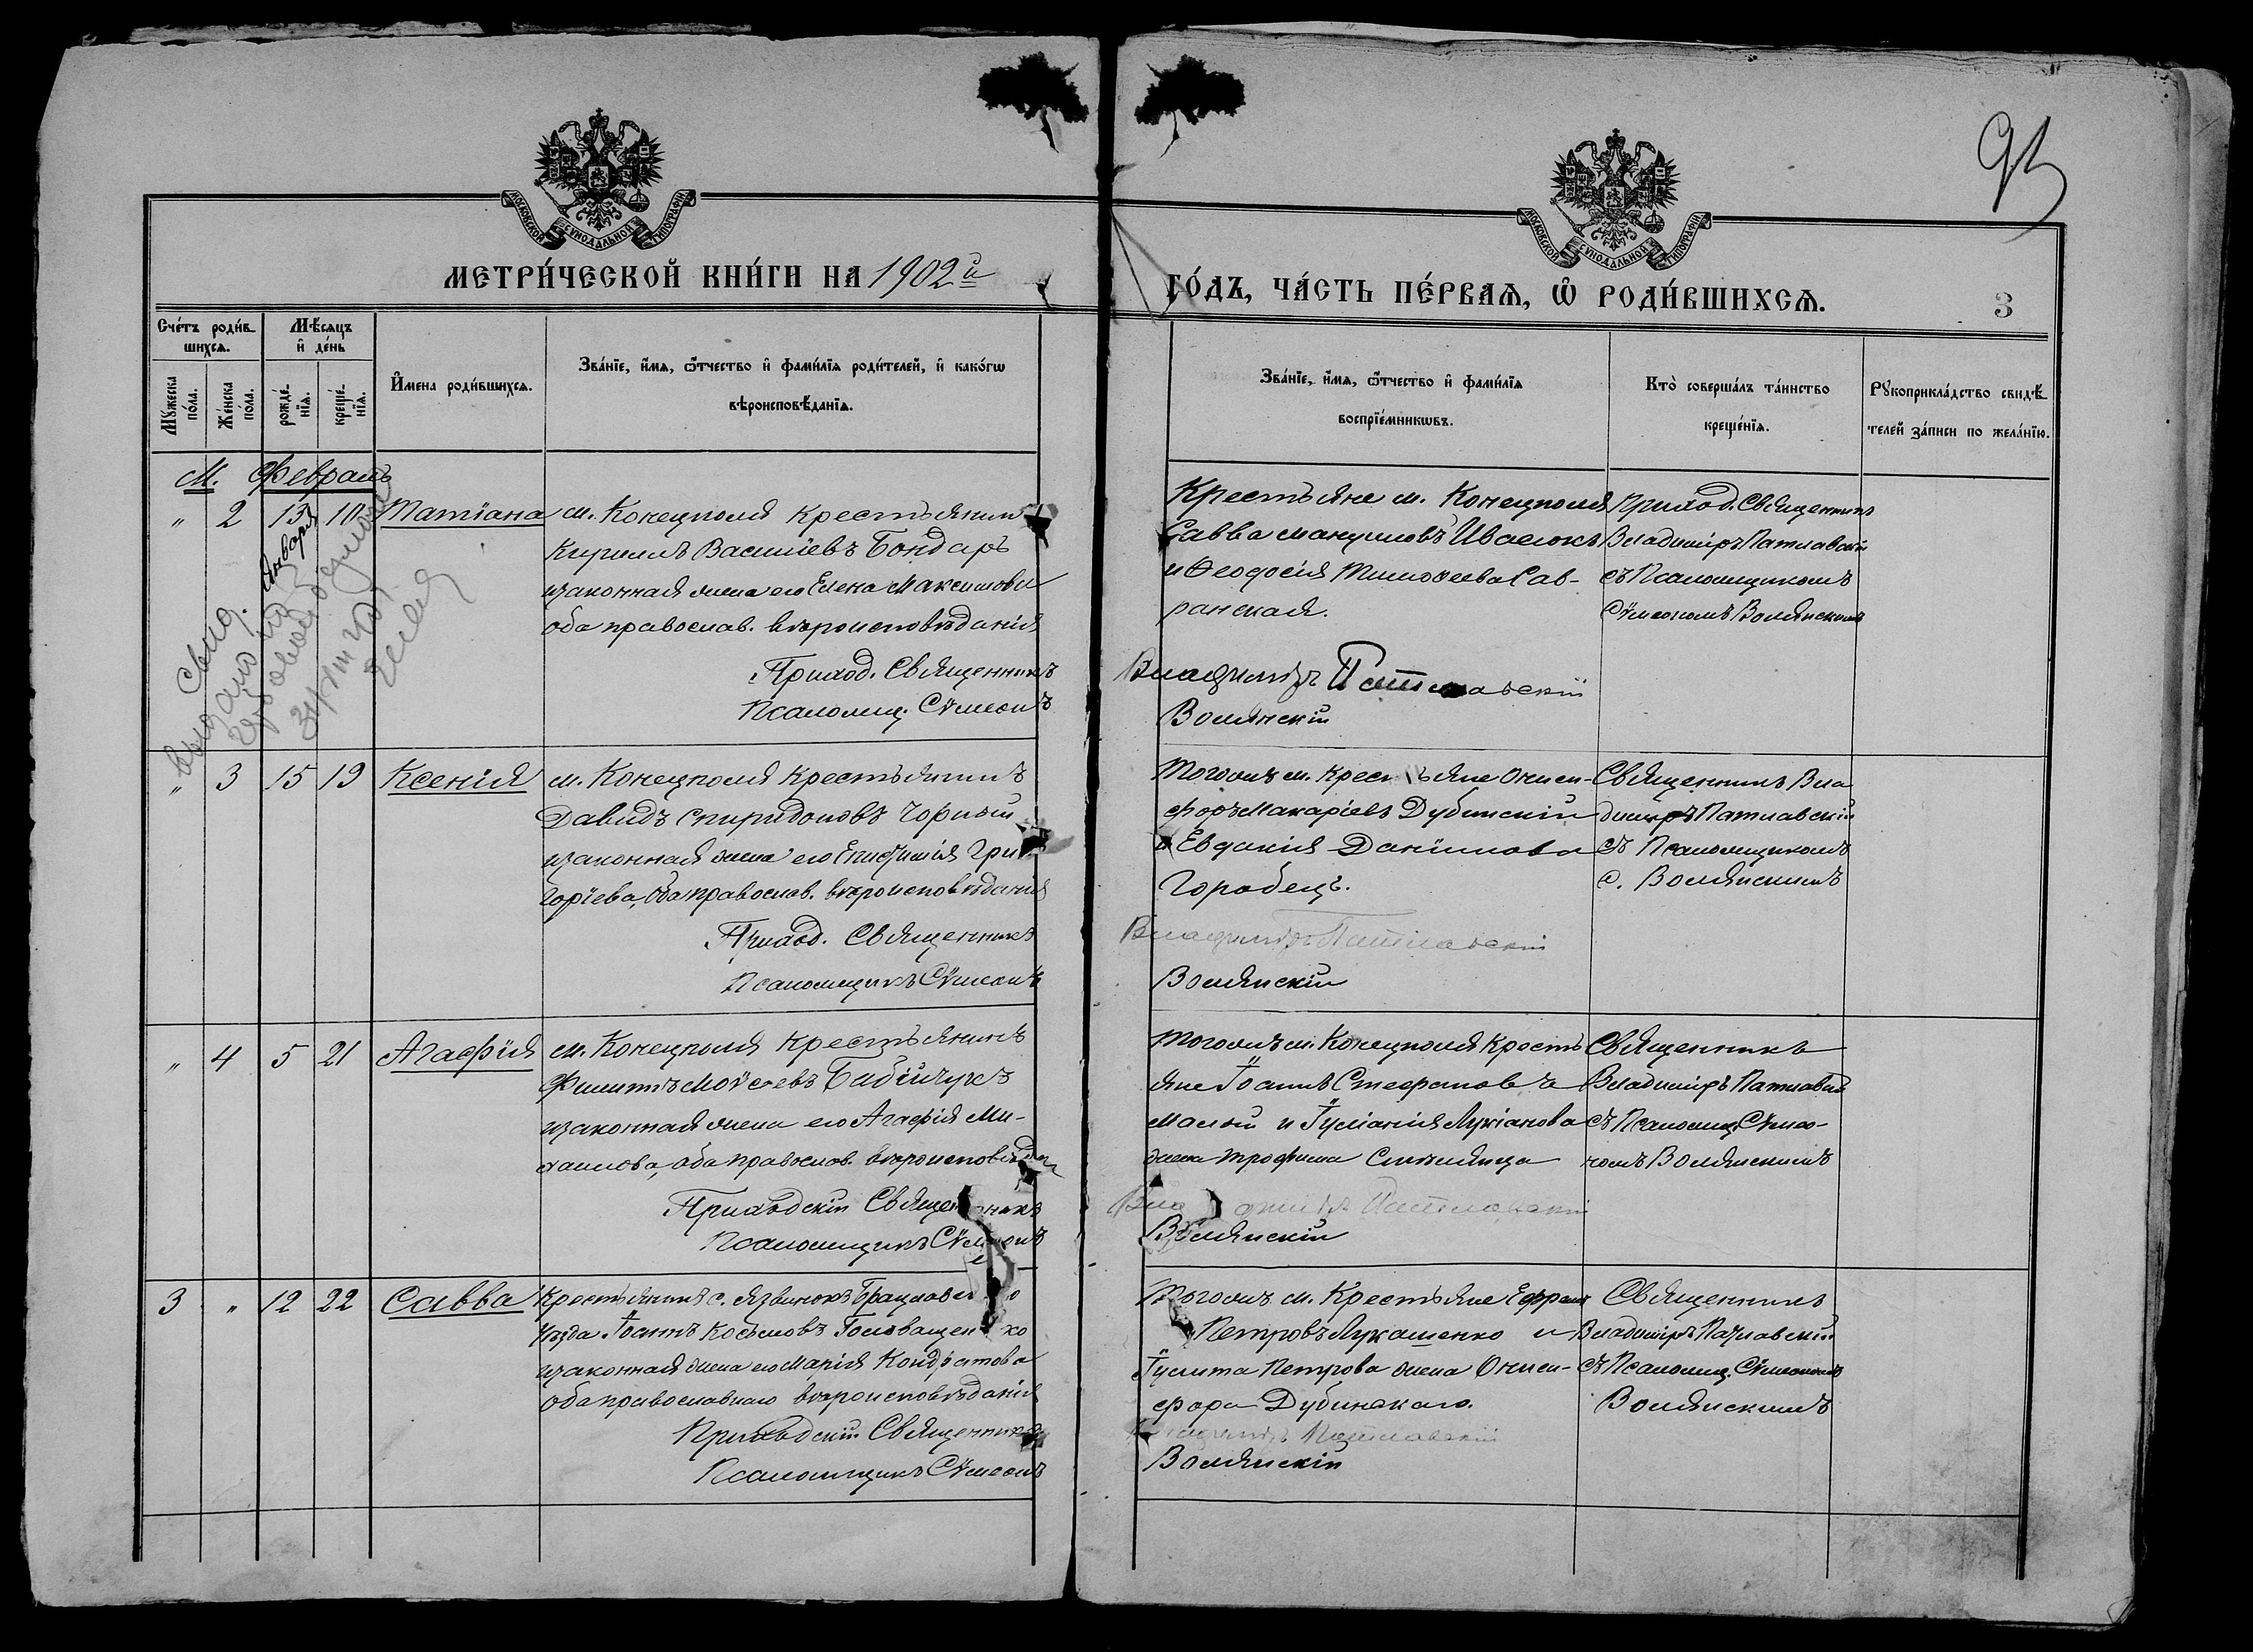 95
МОСКОВСКОЙ СѴНОДАЛЬНОЙ ТИПОГРАФІИ
МОСКОВСКОЙ СѴНОДАЛЬНОЙ ТИПОГРАФІИ
МЕТРИ́ЧЕСКОЙ КНИ́ГИ НА 1902й
ГО́ДЪ, ЧА́СТЬ ПЕ́РВАѦ, Ѽ РОДИ́ВШИХСѦ.
3
Сче́тъ роди́в-
шихсѧ.
Мѣ́сѧцъ
и҆ де́нь
Мꙋ́жеска по́ла.
Же́нска по́ла.
рожде́-нїѧ.
креще́-нїѧ.
И҆мена роди́вшихсѧ.
Зва́нїе, и҆́мѧ, ѻ҆́тчество и҆ фами́лїѧ роди́телей, и҆ како́гѡ
вѣроисповѣ́данїѧ.
Зва́нїе, и҆́мѧ, ѻ҆́тчество и҆ фами́лїѧ
воспрїе́мникѡвъ.
Кто̀ соверша́лъ та́инство
креще́нїѧ.
Рꙋкоприкла́дство свидѣ́-
телей за́писи по жела́нїю.
М. Февраль
" 2 13 10 Татіана
Января
м. Конецполя крестьянинъ
Кириллъ Василіевъ Бондарь
и законная жена его Елена Максимова
оба православ. вѣроисповѣданія
Приход. Священникъ
Псаломщ. Сѵмеонъ
Крестьяне м. Конецполя
Савва Мануиловъ Ивасюкъ
и Ѳеодосія Тимоѳеева Сав-
ранская.
Владиміръ Патлавскій
Волянскій
Приход. Священникъ
Владиміръ Патлавскій
съ Псаломщикомъ
Сѵмеономъ Волянскимъ
" 3 15 19 Ксенія
м. Конецполя крестьянинъ
Давидъ Спиридоновъ Чорный
и законная жена его Епистимія Гри-
горіева, оба православ. вѣроисповѣданія
Приход. Священникъ
Псаломщикъ Сѵмеонъ
Тогожъ м. крестьяне Ониси-
форъ Макаріевъ Дубинскій
и Евдокія Даніилова
Горобецъ.
Владиміръ Патлавскій
Волянскій
Священникъ Вла
диміръ Патлавскій
съ Псаломщикомъ
С. Волянскимъ
" 4 5 21 Агафія
м. Конецполя крестьянинъ
Филиппъ Моѵсеевъ Бабійчукъ
и законная жена его Агафія Ми-
хаилова, оба православ. вѣроисповѣдан
Приходскій Священникъ
Псаломщикъ Сѵмеонъ
Тогожъ м. Конецполя кресть
яне Іоаннъ Стефановъ
Малый и Іуліанія Лукіанова
жена Трофима
Владиміръ Патлавскій
Волянскій
Священникъ
Владиміръ Патлавскій
съ Псаломщ. Сѵмео-
номъ Волянскимъ
3 " 12 22 Савва
Крестьянинъ с. Язвинокъ Брацлавск
уѣзда Іоаннъ Косьмовъ Головащенко
и законная жена его Марія Кондратова
оба православнаго вѣроисповѣданія
Приходскій Священникъ
Псаломщикъ Сѵмеонъ
Тогожъ м. Крестьяне Ефремъ
Петровъ Лукашенко и
Іулита Петрова жена Ониси-
фора Дубинскаго.
Владиміръ Патлавскій
Волянскій
Священникъ
Владиміръ Патлавскій
съ Псаломщ. Сѵмеономъ
Волянскимъ